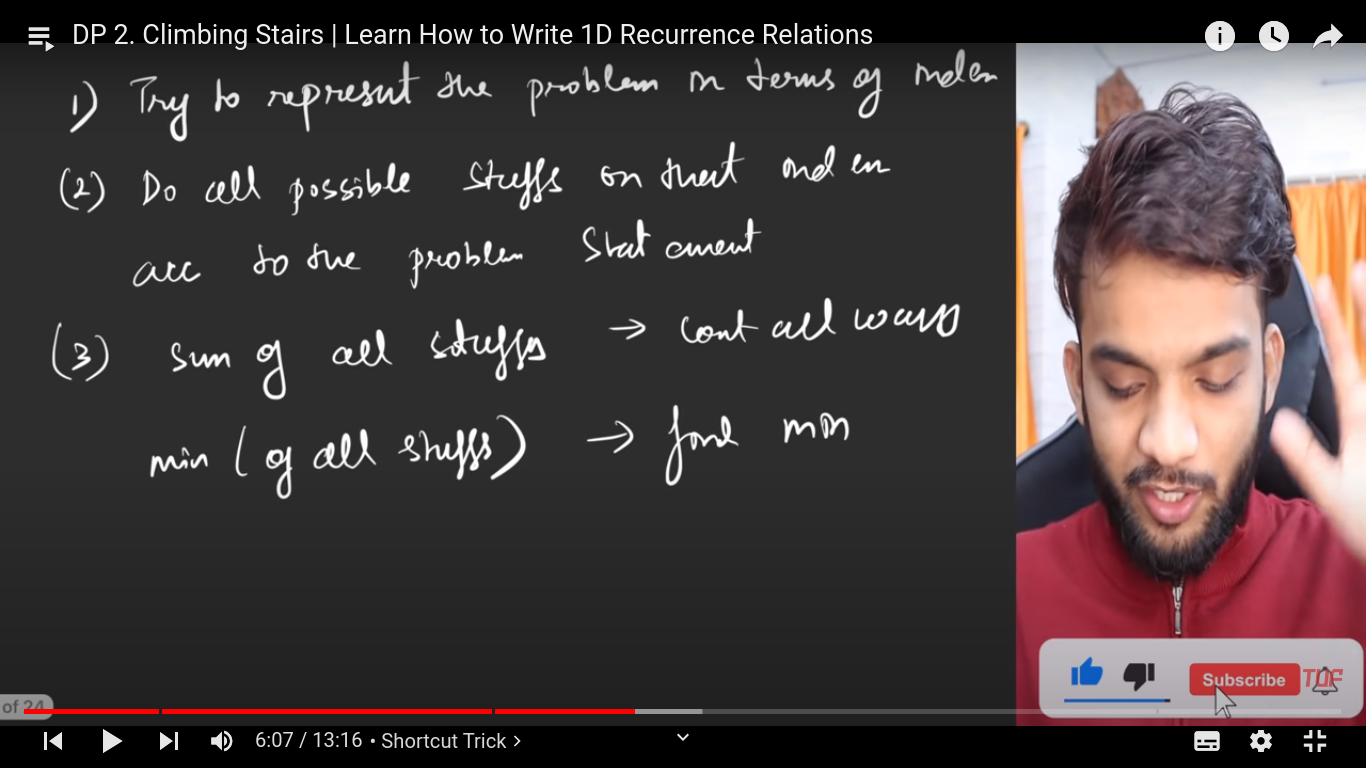 DP 2. Climbing Stairs | Learn How to Write 1D Recurrence Relations
1) Try to represent the problem in terms of index
(2) Do all possible stuffs on that index
acc to the problem Statement
(3) sum of all stuffs → count all ways
min (of all stuffs) → find min
Subscribe TUF
of 24
6:07 / 13:16 • Shortcut Trick >